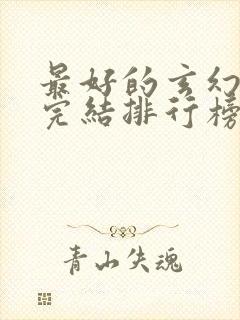 最好的玄幻
完結排行榜
青山失魂